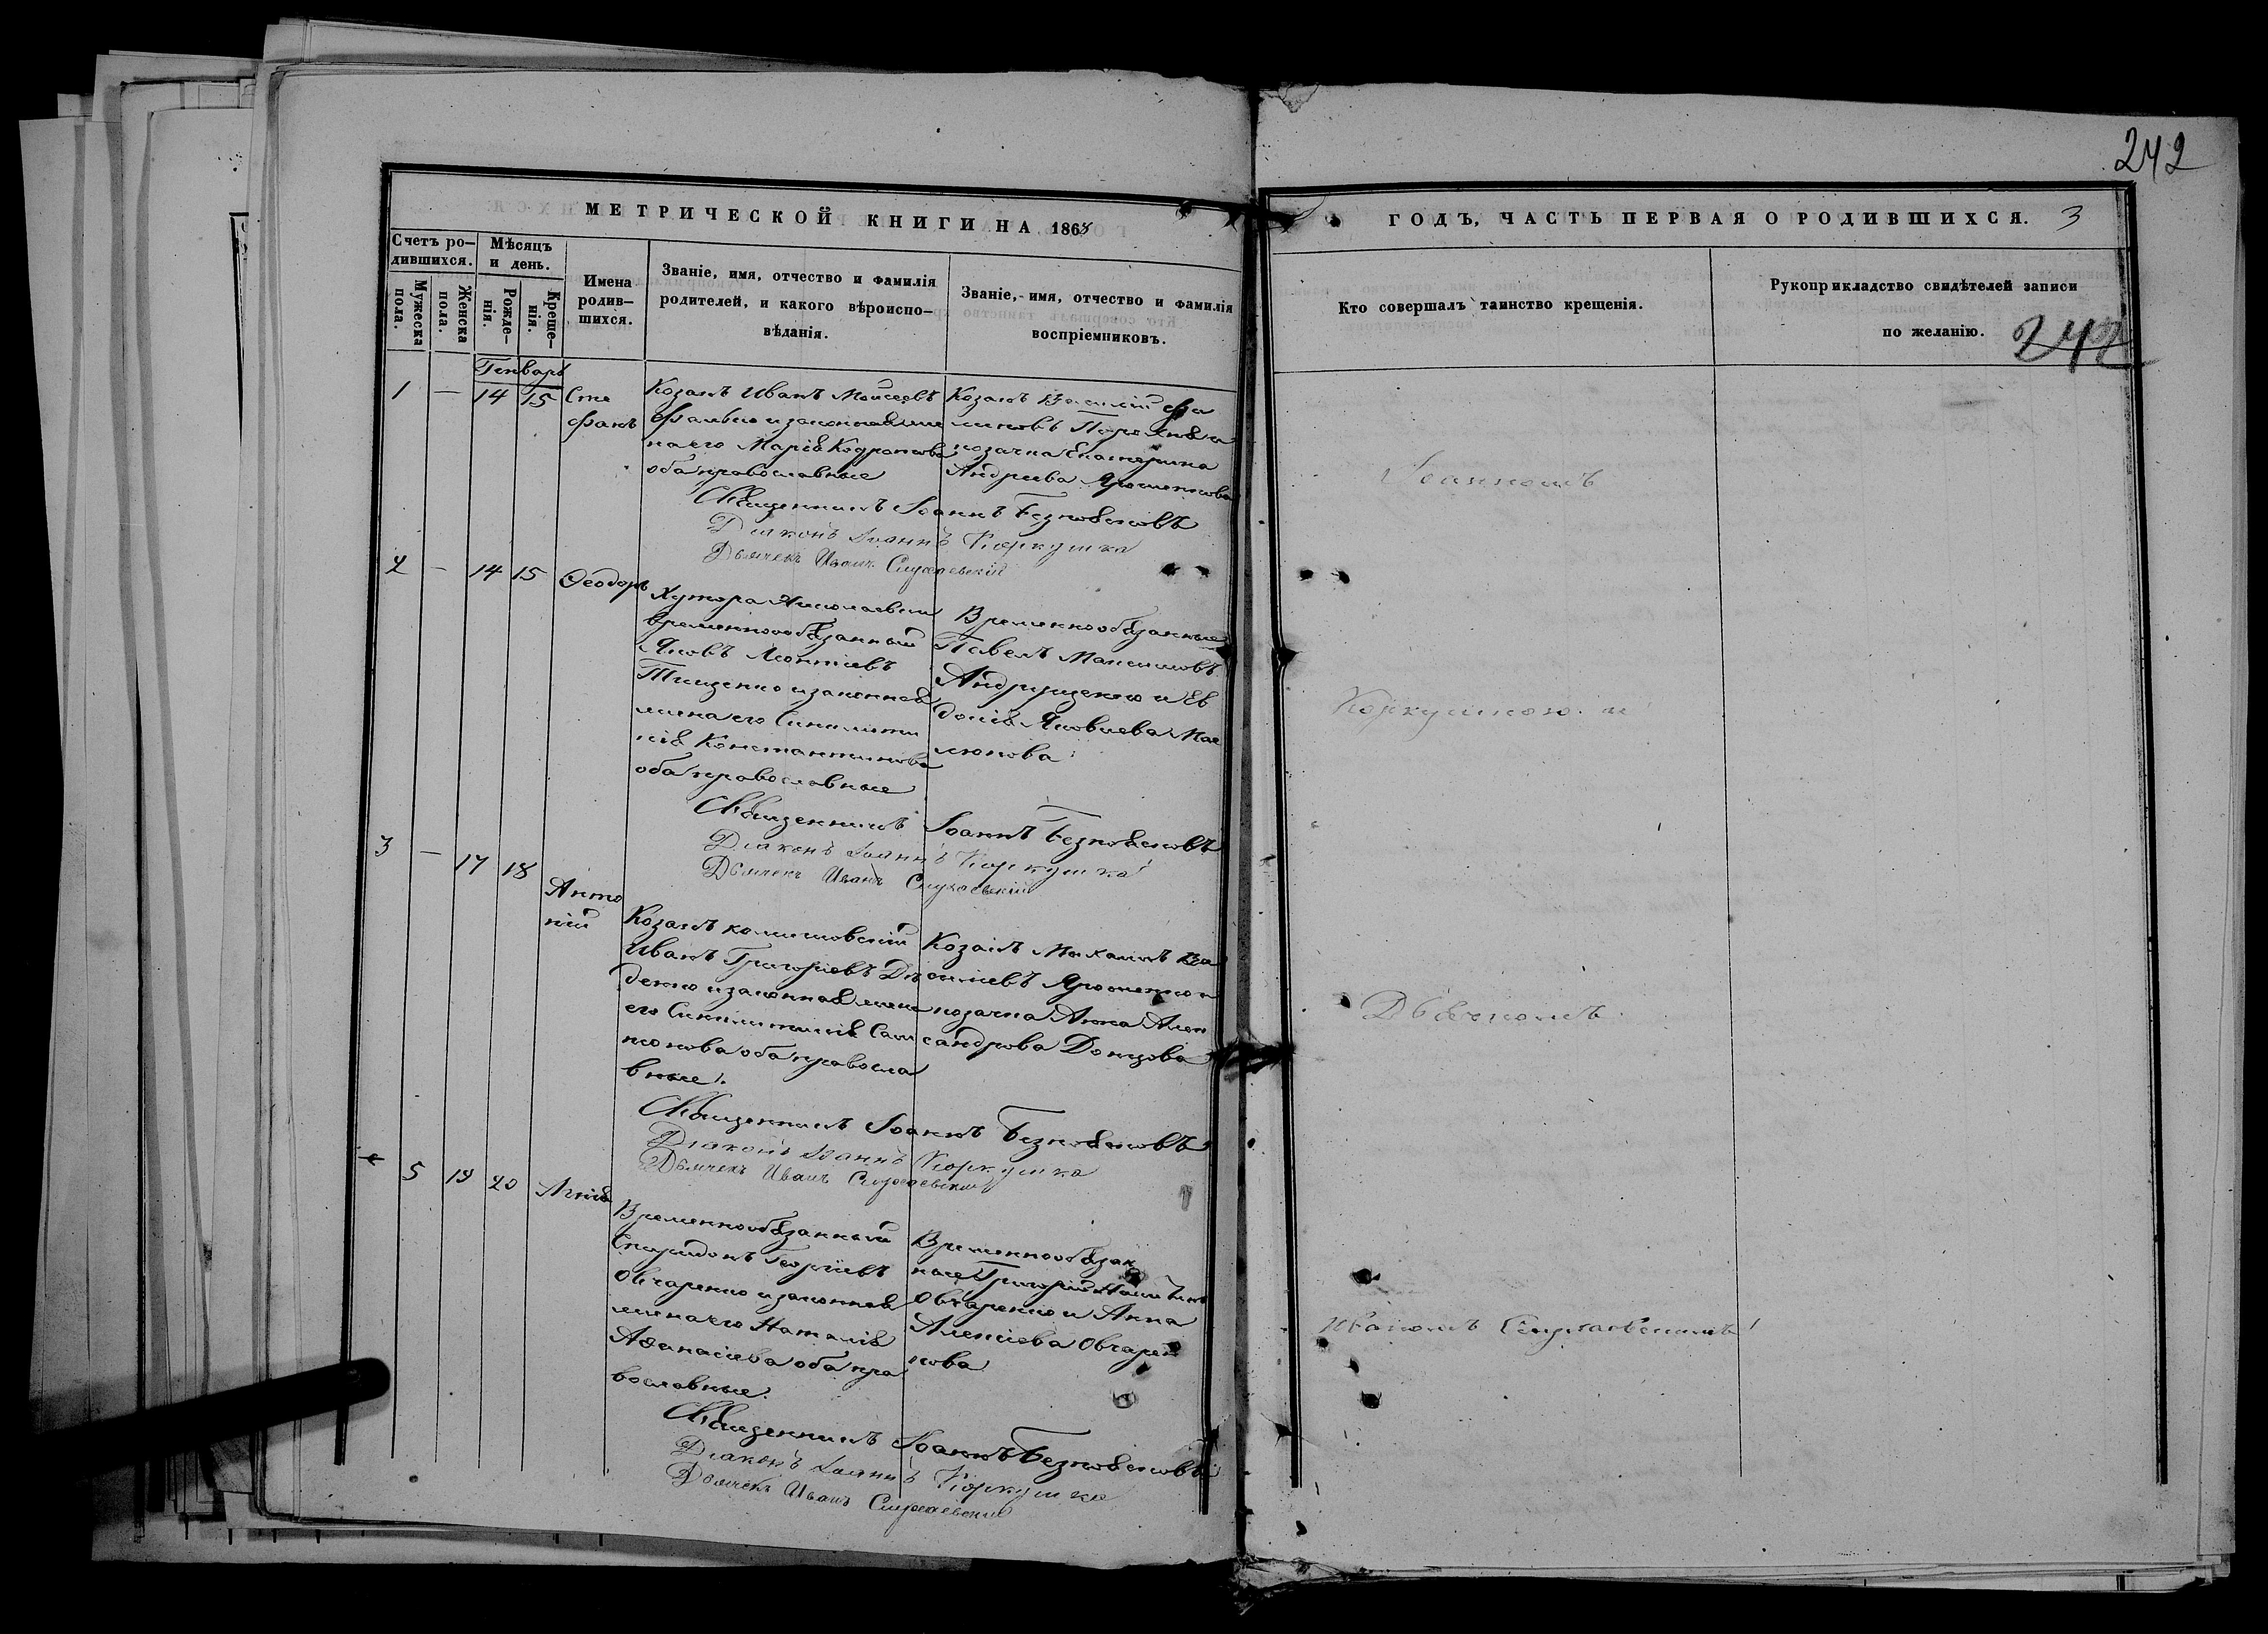 242
МЕТРИЧЕСКОЙ КНИГИ НА 1868
ГОДЪ, ЧАСТЬ ПЕРВАЯ О РОДИВШИХСЯ. 3
Счетъ ро-
дившихся.
Мужеска
пола.
Женска
пола.
Мѣсяцъ
и день.
Рожде-
нія.
Креще-
нія.
Имена
родив-
шихся.
Званіе, имя, отчество и фамилія
родителей, и какого вѣроиспо-
вѣданія.
Званіе, имя, отчество и фамилія
воспріемниковъ.
Кто совершалъ таинство крещенія.
Рукоприкладство свидѣтелей записи
по желанію.
242
Генварь
1 — 14 15 Сте
фанъ
Козакъ Иванъ Моисеевъ
и законная же
на его Марія
оба православные
Козакъ Василій
козачка Екатерина
Андреева Ярошенкова
Священникъ Іоаннъ
Діаконъ Іоаннъ Коркушка
Дьячекъ Иванъ
2 — 14 15 Ѳеодоръ
Хутора Николаевки
временнообязанный
Яковъ Леонтіевъ
Тищенко и законная
жена его Синклити
кія Константинова
оба православные
Временнообязанные
Павелъ Максимовъ
и Ев
докія Яковлева
Священникъ Іоаннъ
Діаконъ Іоаннъ Коркушка
Дьячекъ Иванъ
3 — 17 18 Анто
ній
Козакъ
Иванъ Григоріевъ Ди
денко и законная жена
его Синклитикія Сам
сонова оба правосла
вные.
Козакъ Михаилъ Ва
силіевъ Ярошенко и
козачка Анна Алек
сандрова Донцова
Священникъ Іоаннъ
Діаконъ Іоаннъ Коркушка
Дьячекъ Иванъ
5 19 20 Агнія
Временнообязанный
Спиридонъ Георгіевъ
Овчаренко и законная
жена его Наталія
Аѳанасіева оба пра
вославные.
Временнообязан
ные Григорій
Овчаренко и Анна
Алексіева Овчарен
кова
Священникъ Іоаннъ
Діаконъ Іоаннъ Коркушка
Дьячекъ Иванъ
Іоанномъ
Коркушкою и
Дьячкомъ
Иваномъ